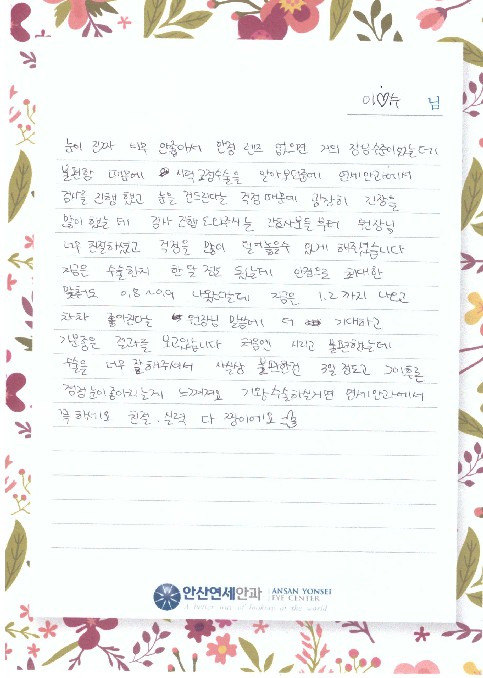 이♡수 님
눈이 진짜 너무 안좋아서 안경 렌즈 없으면 거의 장님수준이었는데
불편함 때문에 시력교정수술을 알아보던중에 연세안과에서
검사를 진행했고 눈을 건드린다는 걱정때문에 굉장히 긴장을
많이 했는데 검사 진행 도와주시는 간호사분들 부터 원장님
너무 친절하셨고 걱정을 많이 덜어놓을수 있게 해주셨습니다
지금은 수술한지 한달 정도 됐는데 안경으로 최대한
맞춰도 0.8~0.9 나왔었는데 지금은 1.2까지 나오고
차차 좋아진다는 원장님 말씀에 더 기대하고
기분좋은 결과를 보고있습니다 처음엔 시리고 불편했는데
수술을 너무 잘해주셔서 사실상 불편한건 3일 정도고 그이후론
점점 눈이 좋아지는게 느껴져요 기왕 수술하실거면 연세안과에서
꼭 하세요 친절, 실력 다 짱이에요
안산연세안과 ANSAN YONSEI
EYE CENTER
A better way of looking at the world